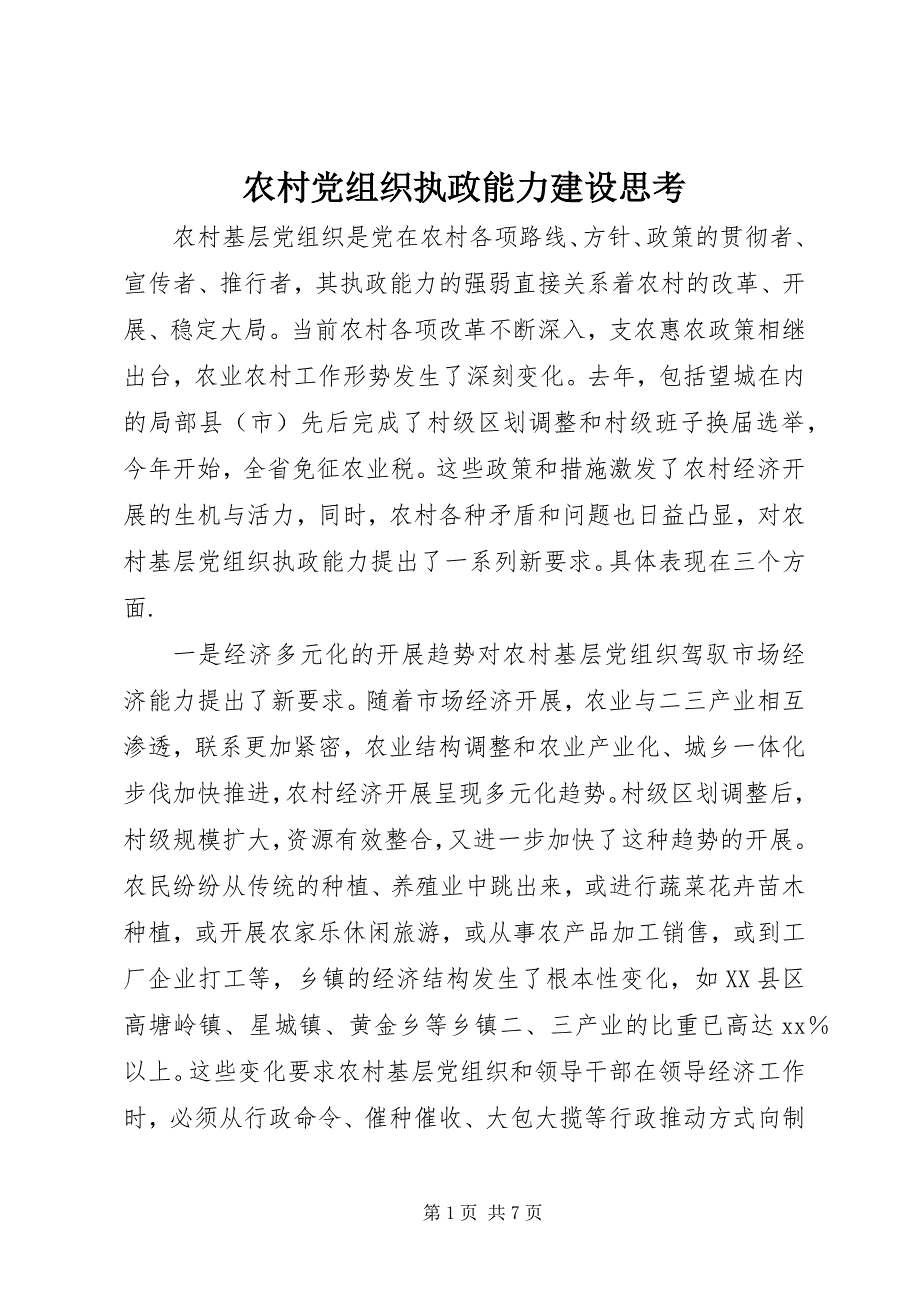 农村党组织执政能力建设思考
农村基层党组织是党在农村各项路线、方针、政策的贯彻者、
宣传者、推行者，其执政能力的强弱直接关系着农村的改革、开
展、稳定大局。当前农村各项改革不断深入，支农惠农政策相继
出台，农业农村工作形势发生了深刻变化。去年，包括望城在内
的局部县（市）先后完成了村级区划调整和村级班子换届选举，
今年开始，全省免征农业税。这些政策和措施激发了农村经济开
展的生机与活力，同时，农村各种矛盾和问题也日益凸显，对农
村基层党组织执政能力提出了一系列新要求。具体表现在三个方
面.
一是经济多元化的开展趋势对农村基层党组织驾驭市场经
济能力提出了新要求。随着市场经济开展，农业与二三产业相互
渗透，联系更加紧密，农业结构调整和农业产业化、城乡一体化
步伐加快推进，农村经济开展呈现多元化趋势。村级区划调整后，
村级规模扩大，资源有效整合，又进一步加快了这种趋势的开展。
农民纷纷从传统的种植、养殖业中跳出来，或进行蔬菜花卉苗木
种植，或开展农家乐休闲旅游，或从事农产品加工销售，或到工
厂企业打工等，乡镇的经济结构发生了根本性变化，如 XX 县区
高塘岭镇、星城镇、黄金乡等乡镇二、三产业的比重已高达 xx%
以上。这些变化要求农村基层党组织和领导干部在领导经济工作
时，必须从行政命令、催种催收、大包大揽等行政推动方式向制
第 1 页 共 7 页